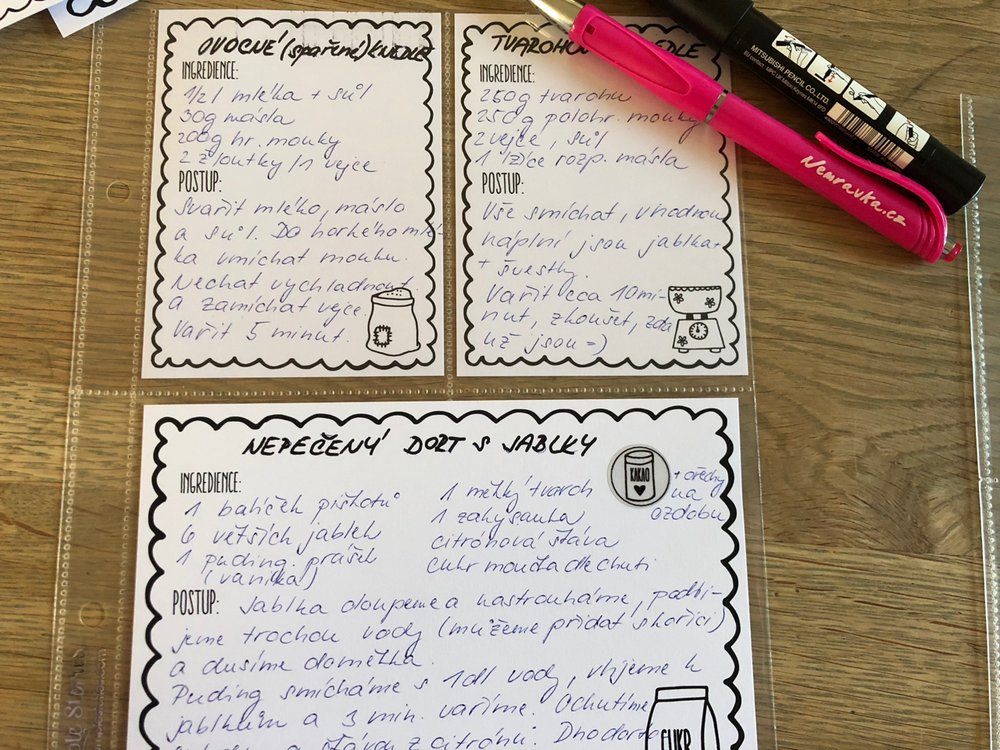 OVOCNÉ (spařené) KNEDLE
INGREDIENCE:
1/2 l mléka + sůl
30g másla
200g hr. mouky
2 žloutky /1 vejce
POSTUP:
Svařit mléko, másla
a sůl. Do horkého mlé-
ka vmíchat mouku.
Nechat vychladnout
a zamíchat vejce.
Vařit 5 minut.
INGREDIENCE:
250g tvarohu
250g polohr. mouky
2 vejce, sůl
1 lžíce rozp. másla
POSTUP:
Vše smíchat, vhodnou
náplní jsou jablka
+ švestky.
Vařit cca 10 mi-
nut, zkoušet, zda
už jsou =)
MITSUBISHI PENCIL CO., LTD.
Nemravka.cz
NEPEČENÝ DORT S JABLKY
INGREDIENCE:
1 balíček piškotů
6 větších jablek
1 puding. prášek
(vanilka)
1 měkký tvaroh
1 zakysanka
citrónová šťáva
cukr moučka dle chuti
KAKAO
+ ořechy
na
ozdobu
POSTUP: Jablka oloupeme a nastrouháme, podli-
jeme trochou vody (můžeme přidat skořici)
a dusíme doměkka.
Puding smícháme s 1dl vody, vlijeme k
jablkům a 3 min. vaříme. Ochutíme
a šťávou z citrónu. Dno dortu
CUKR